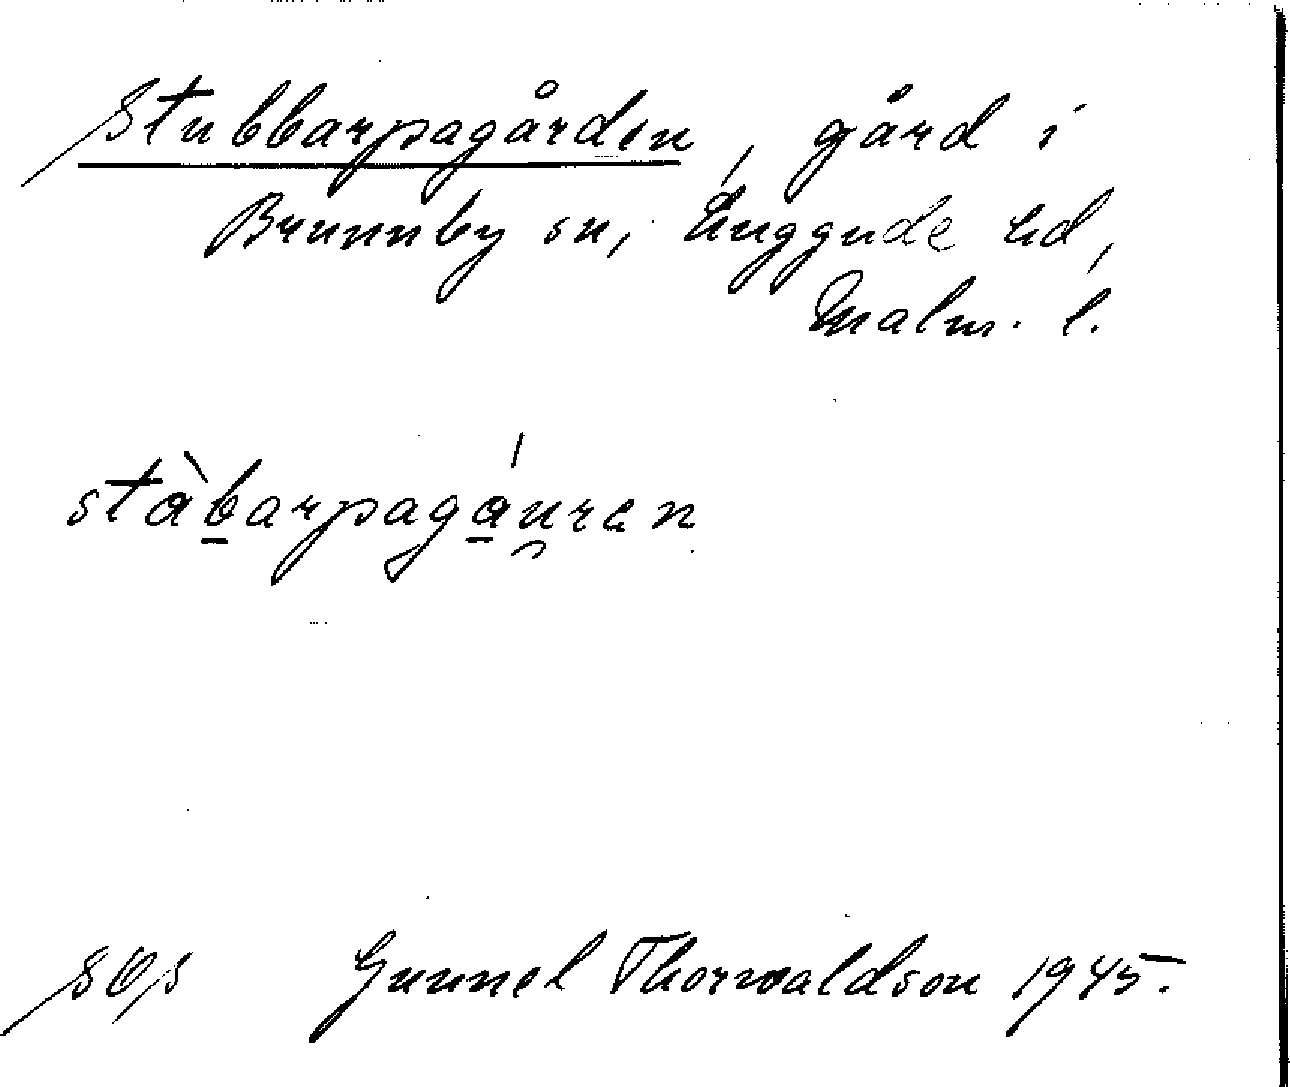 Stubbarpagården, gård i
Brunnby sn, Luggude hd,
Malm. l.
stàbarpagáuren
Gunnel Thorwaldson 1945.